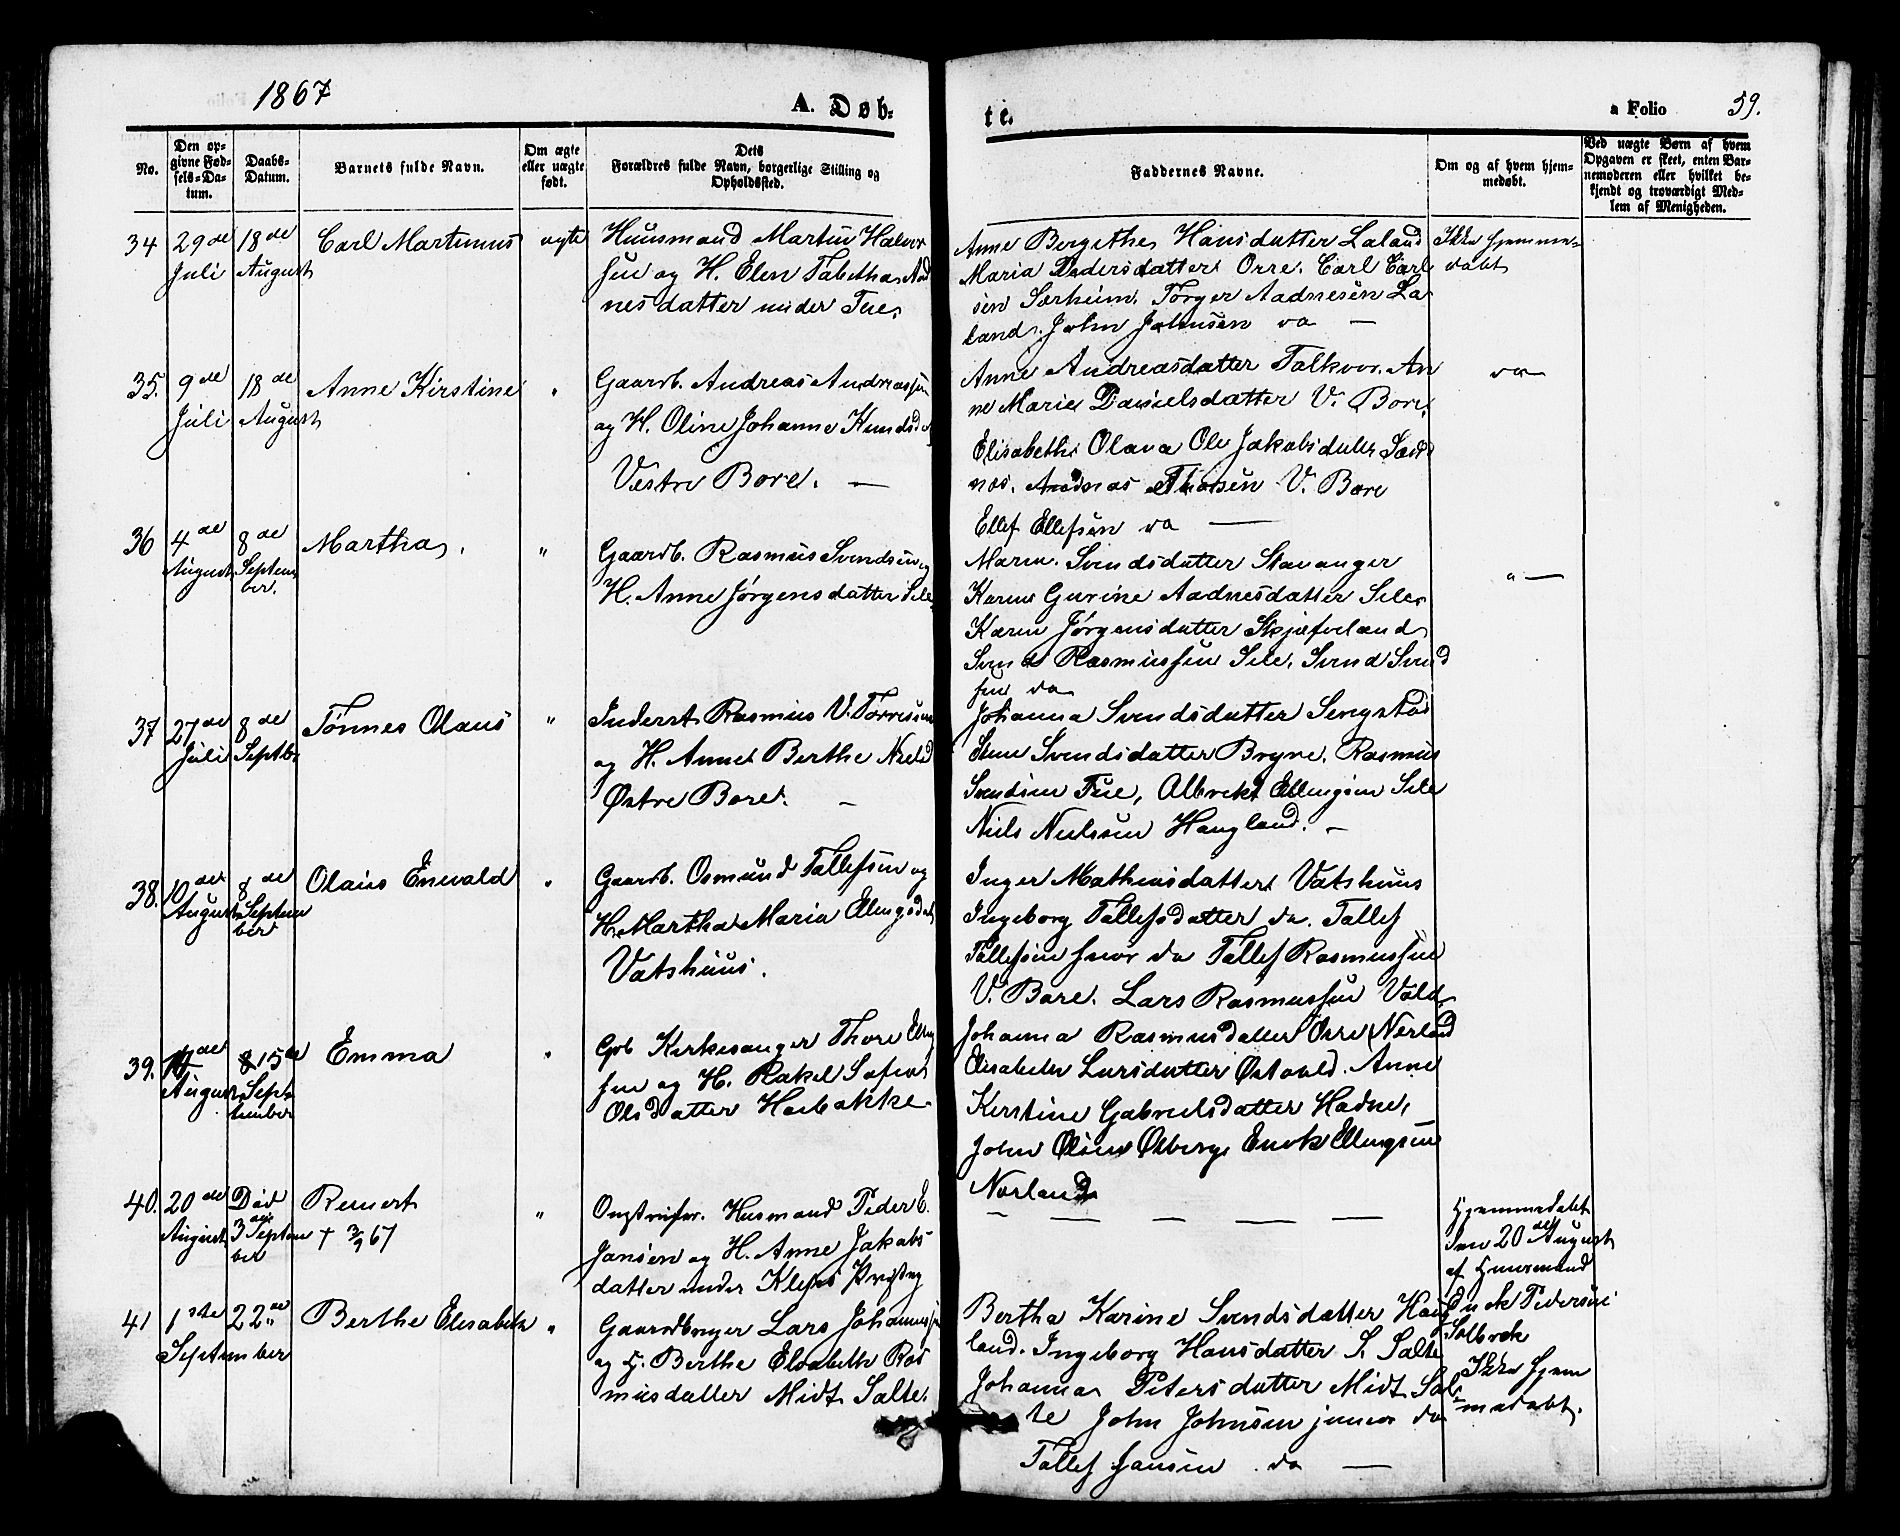 1867
A. Døb-
te.
a Folio 59.
No.
Den op-
givne Fød-
sels-Da-
tum.
Daabs-
Datum.
Barnets fulde Navn.
Om ægte
eller uægte
født.
Dets
Forældres fulde Navn, borgerlige Stilling og
Opholdssted.
Faddernes Navne.
Om og af hvem hjem-
medøbt.
Ved uægte Børn af hvem
Opgaven er skeet, enten Bar-
nemoderen eller hvilket be-
kjendt og troværdigt Med-
lem af Menigheden.
34
29de
Juli
18de
August
Carl Martinius
ægte
Huusmand Martin Halvor
sen og H. Elen Tabetha Aad
nesdatter under Tue.
Anne Bergithe Hansdatter Laland
Maria Pedersdatter Orre. Carl Carl
sen Særheim. Törger Aadnesen La
land. John Johnsen do —
Ikke hjemme-
døbt
35.
9de
Juli
18de
August
Anne Kirstine
"
Gaardb. Andreas Andreassen
og H. Oline Johanne Knudsd.
Vestre Bore. —
Anne Andreasdatter Folkvor. An
ne Marie Danielsdatter V. Bore.
Elisabeth Olava Ole Jakobsdatter Sand
næs. Andreas Thorsen V. Bore
Ellef Ellefsen do —
do
36
4de
August
8de
Septem
ber.
Martha
"
Gaardb. Rasmus Svendsen og
H. Anne Jørgensdatter Sele
Maren Svendsdatter Stavanger
Karen Gurine Aadnesdatter Sele
Karen Jørgensdatter Skjæfveland
Svend Rasmussen Sele, Svend Svend
sen do
" —
37
27de
Juli
8de
Septbr
Tönnes Olaus
"
Inderst Rasmus V. Torressen
og H. Anne Berthe Nielsd
Østre Bore. —
Johanna Svendsdatter
Svendsdatter Bryne. Rasmus
Svendsen Tue, Albrekt Ellingsen Sele
Niels Nielsen Haugland. —
38.
10de
August
8de
Septem
ber
Olaus Enevald
"
Gaardb. Osmund Tollefsen og
H. Martha Maria Ellingsdat
Vatshuus.
Inger Mathiasdatter Vatshuus
Ingeborg Tollefsdatter do. Tollef
Tollefsen do Tollef Rasmussen
V. Bore. Lars Rasmussen Vold
39.
August
15de
Sep-
tember
Emma
"
Gb Kirkesanger Thore Elling
sen og H. Rakel Sofie
Olsdatter Hoibakke
Johanna Rasmusdatter Orre (Nerland
Elisabeth Larsdatter Østvold. Anne
Kerstine Gabrielsdatter Hadne,
John Olsen Ølberg. Enok Ellingsen
Norland
40.
20de
August
Död
3de Septem
ber
Reinert
† 3/9 67
"
Husmand Peder E.
Jansen og H. Anne Jakobs
datter under Klepps Præsteg
— — — — —
Hjemmedøbt
den 20de August
af Huusmand
Enok Pedersen
Solbrek
41
1ste
September
22de
Berthe Elisabeth
"
Gaardbruger Lars Johannessen
og H. Berthe Elisabeth Ras
musdatter Midt Salte.
Bertha Karine Svendsdatter Haug
land. Ingeborg Hansdatter S. Salte
Johanna Petersdatter Midt Sal-
te John Johnsen junior do
Tollef Hansen do —
Ikke hjem
medøbt.